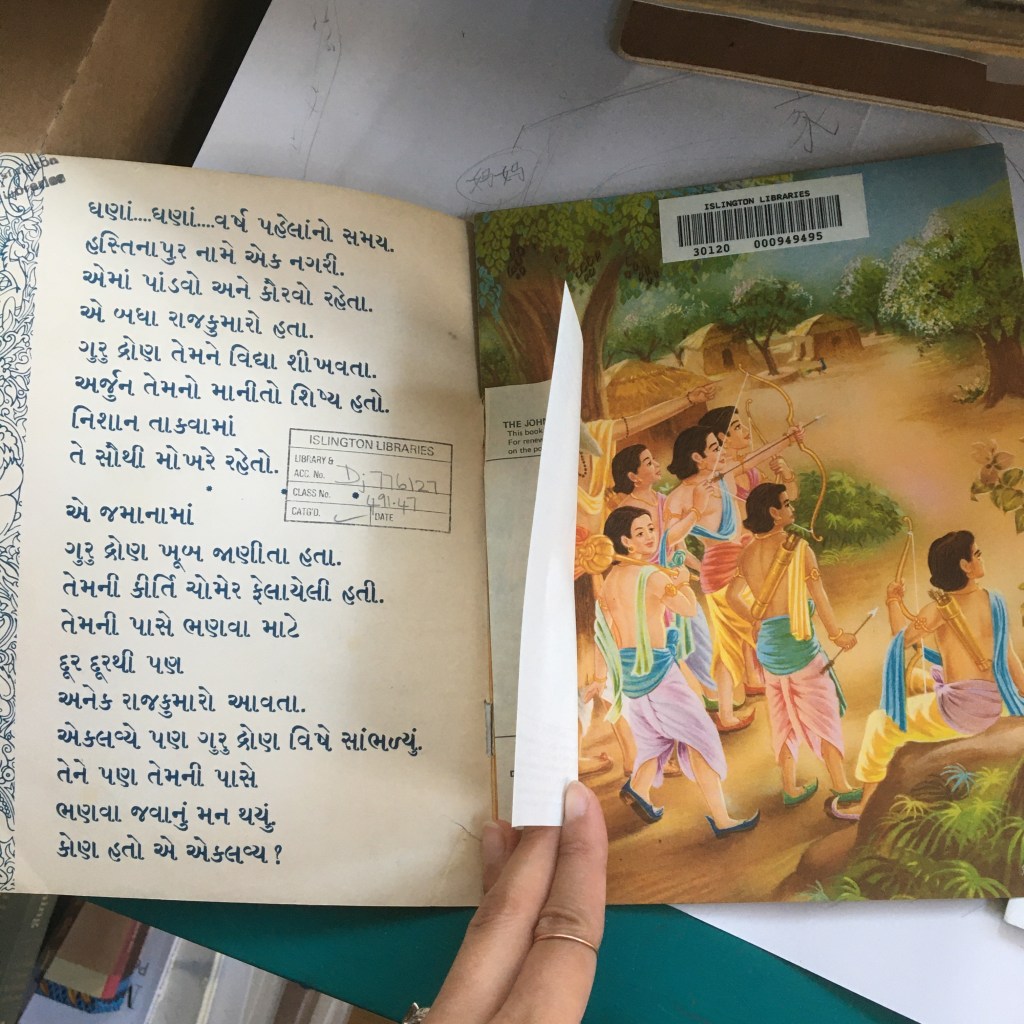 ઘણાં....ઘણાં....વર્ષ પહેલાંનો સમય.
હસ્તિનાપુર નામે એક નગરી.
એમાં પાંડવો અને કૌરવો રહેતા.
એ બધા રાજકુમારો હતા.
ગુરુ દ્રોણ તેમને વિદ્યા શીખવતા.
અર્જુન તેમનો માનીતો શિષ્ય હતો.
નિશાન તાકવામાં
તે સૌથી મોખરે રહેતો.
એ જમાનામાં
ગુરુ દ્રોણ ખૂબ જાણીતા હતા.
તેમની કીર્તિ ચોમેર ફેલાયેલી હતી.
તેમની પાસે ભણવા માટે
દૂર દૂરથી પણ
અનેક રાજકુમારો આવતા.
એકલવ્યે પણ ગુરુ દ્રોણ વિષે સાંભળ્યું.
તેને પણ તેમની પાસે
ભણવા જવાનું મન થયું.
કોણ હતો એ એકલવ્ય?
ISLINGTON LIBRARIES
LIBRARY &
ACC No. Dj 776127
CLASS No. 491.47
CATG'D. DATE
ISLINGTON LIBRARIES
30120 000949495
THE JOHN
This book
For renew
on the po
妈妈